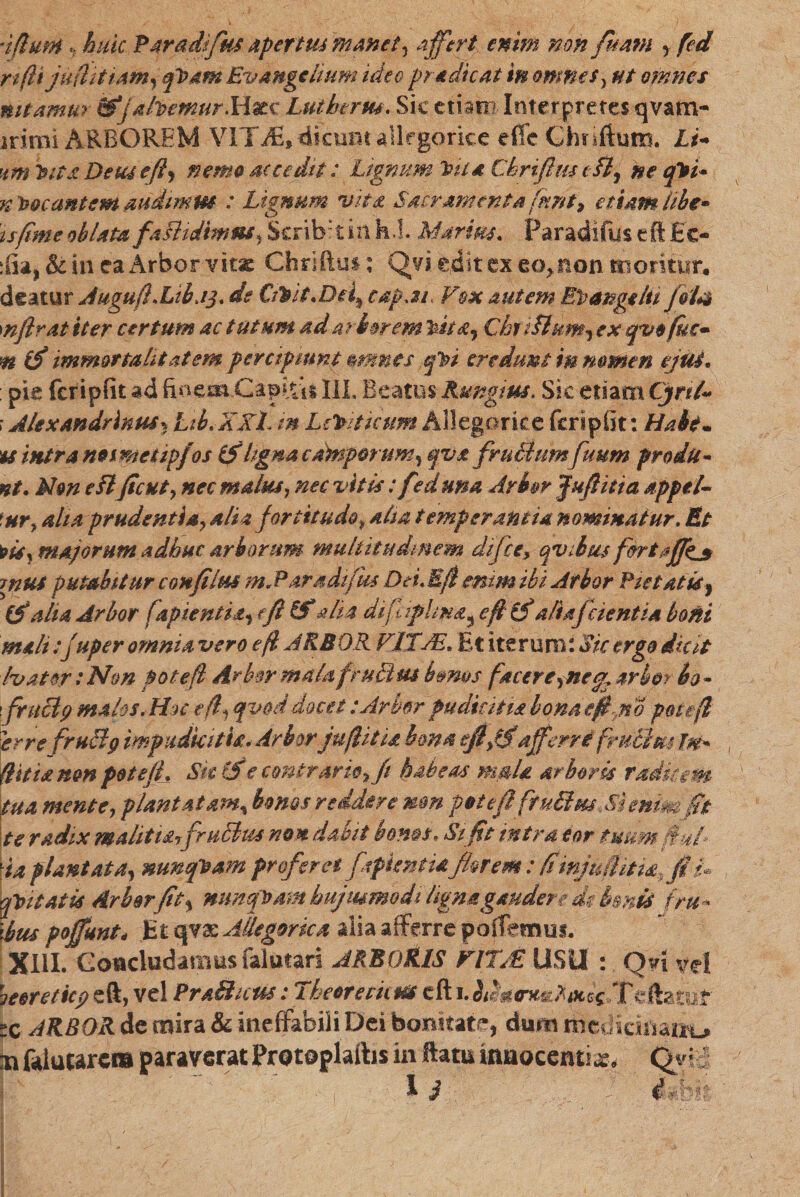 iſtum, huic Paradiſus apertus manet, affert enim non ſuam, ſed
juſtitiam, qvam Evangelium ideo prædicat in omnes, ut omnes
nitamur & ſalvemur. Hæc Lutherus. Sic etiam Interpretes qvam-
ARBOREM VITÆ, dicunt allegorice eſſe Chriſtum. Li-
vitæ Deus eſt, nemo accedit: Lignum vitæ Chriſtus eſt, ne qvi-
vocantem audimus: Lignum vitæ Sacramenta ſunt, etiam libe-
oblata faſtidimus, Scribit in h.l. Marius. Paradiſus eſt Ec-
& in ea Arbor vitæ Chriſtus; Qvi edit ex eo, non moritur.
deatur Auguſt. Lib. 13. de Civit. Dei, cap. 21. Vox autem Evangelii ſola
nſtrat iter certum ac tutum ad arborem vitæ, Chriſtum, ex qvo ſuc-
& immortalitatem percipiunt omnes qvi credunt in nomen ejus.
pie ſcripſit ad finem Capitis III. Beatus Rungius. Sic etiam Cyril-
Alexandrinus, Lib. XXI. in Leviticum Allegorice ſcripſit: Habe-
us intra nosmetipſos & ligna camporum, qvæ fructum ſuum produ-
nt. Non eſt ſicut, nec malus, nec vitis: ſed una Arbor Juſtitia appel-
tur, alia prudentia, alia fortitudo, alia temperantia nominatur. Et
majorum adhuc arborum multitudinem diſce, qvibus fortaſſe
putabitur conſilus m. Paradiſus Dei. Eſt enim ibi Arbor Pietatis,
& alia Arbor ſapientiæ, eſt & alia diſciplinæ, eſt & alia ſcientia boni
mali: ſuper omnia vero eſt ARBOR VITÆ. Et iterum: Sic ergo dicit
lvator: Non poteſt Arbor mala fructus bonos facere, neq; arbor bo-
fructus malos. Hoc eſt, qvod docet: Arbor pudicitiæ bona eſt, nō poteſt
erre fructus impudicitiæ. Arbor juſtitiæ bona eſt, & afferre fructus In-
ſtitiæ non poteſt. Sic & e contrario, ſi habeas malæ arboris radicem
tua mente, plantatam, bonos reddere non poteſt fructus. Si enim ſit
te radix malitiæ, fructus non dabit bonos. Si ſit intra cor tuum ſtul-
tia plantata, nunqvam proferet ſapientiæ florem: ſi injuſtitiæ, ſi i-
qvitatis Arbor ſit, nunqvam hujusmodi ligna gaudere de bonis fru-
ibus poſſunt. Et qvæ Allegorica alia afferre poſſemus.
XIII. Concludamus ſalutari ARBORIS VITÆ USU: Qvi vel
heoreticq; eſt, vel Practicus: Theoreticus eſt 1. διδασκαλικός. Teſtatur
ARBOR de mira & ineffabili Dei bonitate, dum medicinam
ſalutarem paraverat Protoplaſtis in ſtatu innocentiæ. Qvid
I 3 debit